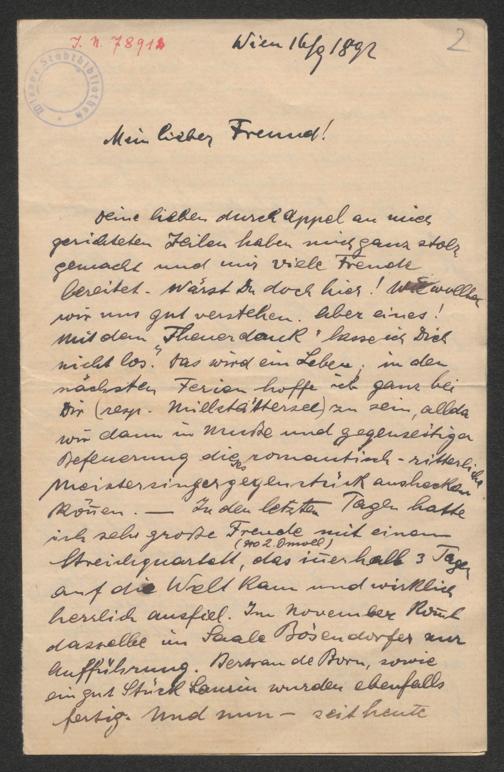 J. N. 78912
Wien 16/9 1892
2
Wiener Stadtbibliothek
Mein lieber Freund!
Deine lieben durch Appel an mich
gerichteten Zeilen haben mich ganz stolz
gemacht und mir viele Freude
bereitet. Wärst Du doch hier! Wie wollten
wir uns gut verstehen. Aber eines!
Mit dem „Theuerdank" lasse ich Dich
nicht los. Das wird ein Leben, in den
nächsten Ferien hoffe ich ganz bei
Dir (resp. Millstättersee) zu sein, allda
wir dann in Muße und gegenseitiger
Befeuerung die romantisch-ritterliche
Meistersingergegenstück aushecken
können. — In den letzten Tagen hatte
ich sehr große Freude mit einem
(No 2 Dmoll)
Streichquartett, das innerhalb 3 Tagen
auf die Welt kam und wirklich
herrlich ausfiel. Im November kommt
dasselbe im Saale Bösendorfer zur
Aufführung. Bertran de Born, sowie
ein gut Stück Laurin wurden ebenfalls
fertig. Und nun — seit heute